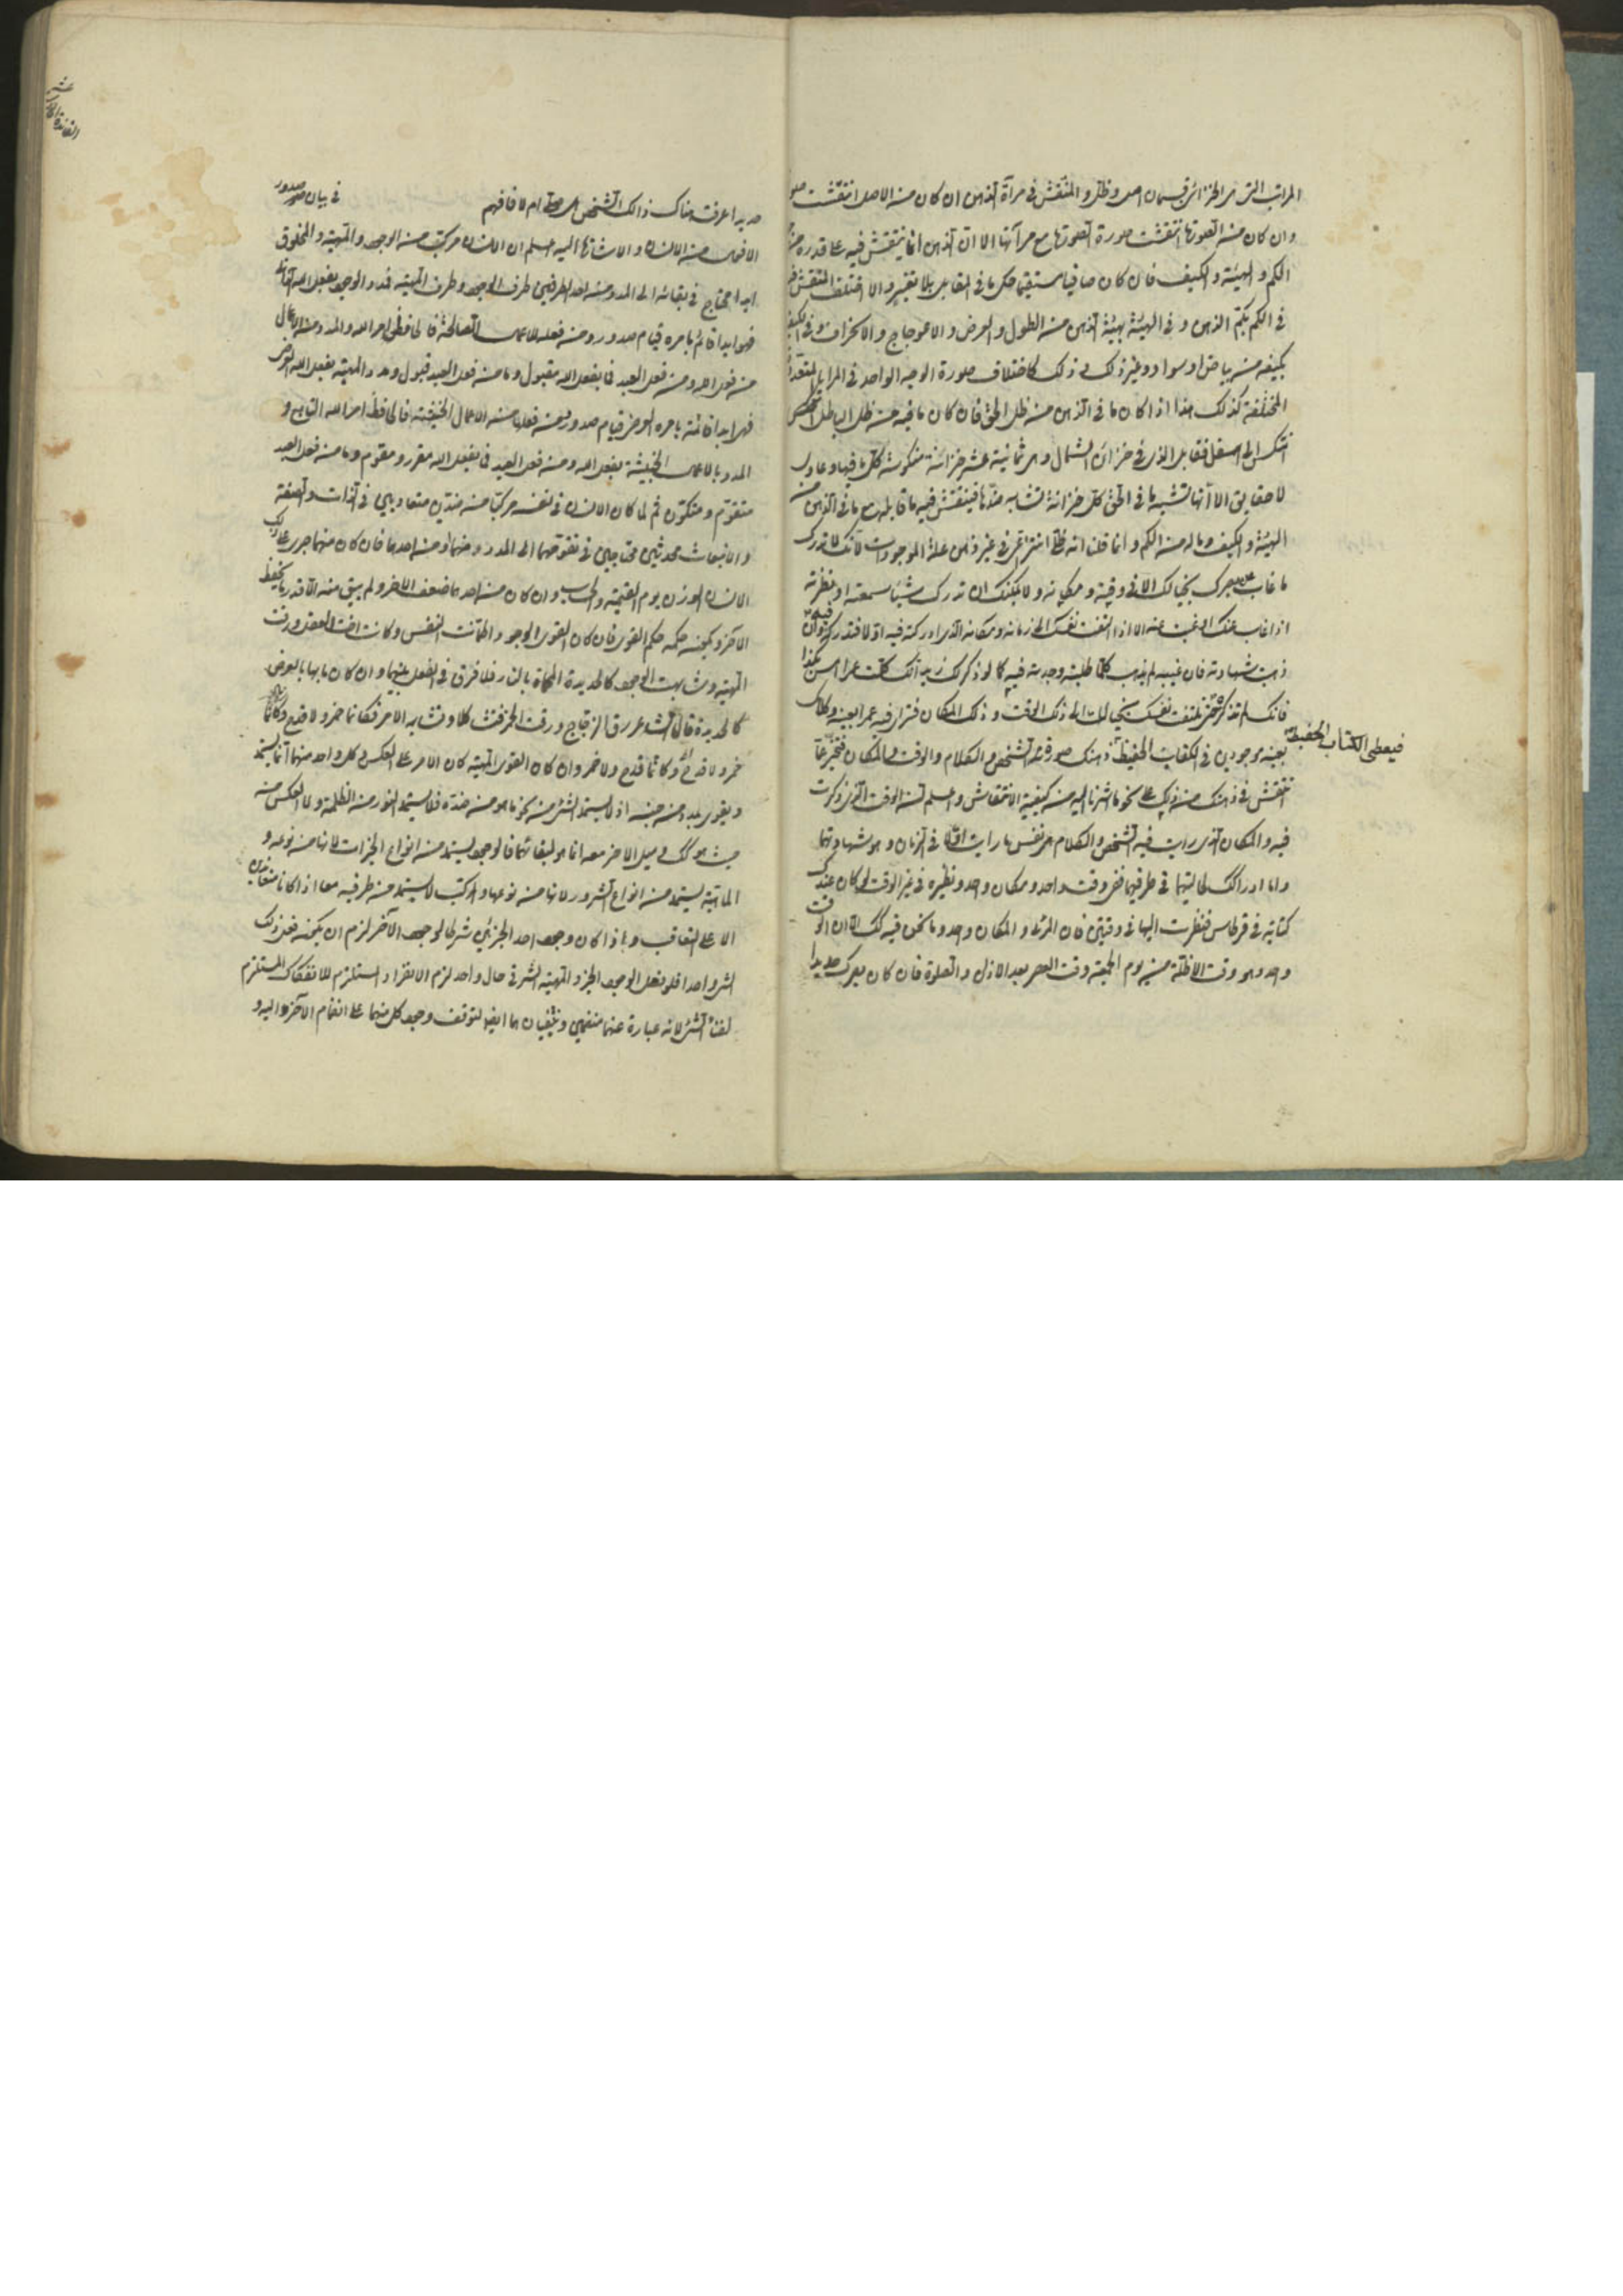 المراتب التي هي الخزائن قسمان اصل وظل والمنتقش في مرآة الذهن ان كان من الاصل انتقشت
وان كان من العوتها انتقشت صورة مع مرآتها الا ان الذهن انما ينتقش فيه على قدره من
الكم والهيئة والكيف فان كان صافيا مستقيما حكى ما في المقابل بلا تغيير والا اختلف المنتقش
في الكم بكم الذهن وفي الهيئة بهيئة الذهن من الطول والعرض والاعوجاج والانحراف وفي الكيف
بكيفه من بياض او سواد وغير ذلك وذلك كاختلاف صورة الوجه الواحد في المرايا المتعددة
المختلفة كذلك هذا اذا كان ما في الذهن من ظل الحق فان كان ما فيه من ظل الباطل
انتكس الى اسفل فقابل الذي في خزائن الشمال وهي ثمانية عشر خزانة منكوسة كل ما فيها دعاوى
لا حقايق الا انها تشبه ما في الحق كل خزانة تشابه ضدها فينتقش فيه ما قابله مع ما في الذهن من
الهيئة والكيف وماله من الكم وانما قلنا انه ظل انتزاعي في غير ذهن علة الموجودات لانك لا تدرك
ما غاب عن بصرك بخيالك الا في وقته ومكانه ولا يمكنك ان تدرك شيئا سمعته او نظرته
اذا غاب عنك او غبت عنه الا اذا التفتت نفسك الى زمانه ومكانه الذي ادركته فيه اولا فتدركه فيه وان
ذهبت شهادته فان غيبه لم يذهب كلما طلبته وجدته فيه كما لو ذكرك زيد انك كلمت عمرا امس بكذا
فانك لم تذكره حتى تلتفت نفسك بخيالك الى ذلك الوقت وذلك المكان فترى فيه عمرا بعينه وكلامك
بعينه موجودين في الكتاب الحفيظ ذهنك صورة الشخص والكلام والوقت والمكان
فيعطى الكتاب الحفيظ
تنتقش في ذهنك من ذلك على نحو ما اشرنا اليه من كيفية الانتقاش واعلم ان الوقت الذي ذكرت
فيه والمكان الذي رايت فيه الشخص والكلام هي نفس ما رايت اولا في الزمان وهو شهادتهما
واما ادراكك لحالتيهما في طرفيهما ففي وقت واحد ومكان واحد ونظيره في غير الوقت لو كان عندك
كتابة في قرطاس فنظرت اليها في وقتين فان المرئي والمكان واحد وما نحن فيه كك الا ان الوقت
واحد وهو وقت الاظلة من يوم الجمعة وقت العصر بعد الاذان والصلوة فان كان بصرك حديدا
حديدا عرفت هناك ذلك الشخص ام لا فافهم
في بيان صدور
الافعال من الانسان والاشارة اليه اعلم ان الانسان مركب من الوجود والمهية والمخلوق
ابدا محتاج في بقائه الى المدد من احد الطرفين طرف الوجود وطرف المهية فمدد الوجود بفعل الله
فهو ابدا قائم بامره قيام صدور ومن فعله الاعمال الصالحة فالحافظ امر الله والمدد من الاعمال
من فعل الله ومن فعل العبد فما بفعل الله مقبول وما من فعل العبد قبول ومدد المهية بفعل الله
فهي ابدا قائمة بامره العرضي قيام صدور ومن فعلها من الاعمال الخبيثة فالحافظ امر الله التابع و
المدد بالاعمال الخبيثة بفعل الله ومن فعل العبد فما بفعل الله مقرر ومقوم وما من فعل العبد
متقوم ومتكون ثم لما كان الانسان في نفسه مركبا من ضدين متعاديين في الذات والصفة
والانبعاث محدثين محتاجين في تقومهما الى المدد ومنهما او من احدهما فان كان منهما جرى على ذلك
الانسان الوزن يوم القيمة والحساب وان كان من احدهما ضعف الآخر ولم يبق منه الا قدر ما يحفظ
الآخر ويكون حكمه حكم القوي فان كان القوي الوجود واطمأنت النفس وكانت اخت العقل ورقت
المهية وشابهت الوجود كالحديدة المحماة بالنار فلا فرق في الفعل بينهما وان كان ما بها بالعرض
كالحديدة قال الشاعر رق الزجاج ورقت الخمر فتشاكلا وتشابه الامر فكانما خمر ولا قدح وكانما
خمر ولا قدح وكانما قدح ولا خمر وان كان القوي المهية كان الامر على العكس وكل واحد منهما انما يستمد
ويقوى بمدد من جنسه اذ لا يستمد الشيء من نحو ما هو من ضده فلا يستمد النور من الظلمة ولا العكس من
حيث هو كك وميل الاخر معه انما هو لبقائهما فالوجود يستمد من انواع الخيرات لانها من نوعه و
الماهية يستمد من انواع الشرور لانها من نوعها والمركب لا يستمد من طرفيه معا اذا كانا متعادلين
الا على التعاقب واذا كان وجود احد الجزئين شرطا لوجود الآخر لزم ان يكون فعل ذلك
الشيء واحدا فلو فعل الوجود الخير والمهية الشر في حال واحد لزم الانفراد المستلزم للانفكاك المستلزم
لفناء الشيء لانه عبارة عنهما منضمين ويفنيان هما ايضا لتوقف وجود كل منهما على انضمام الآخر اليه و
الفائدة
عشر